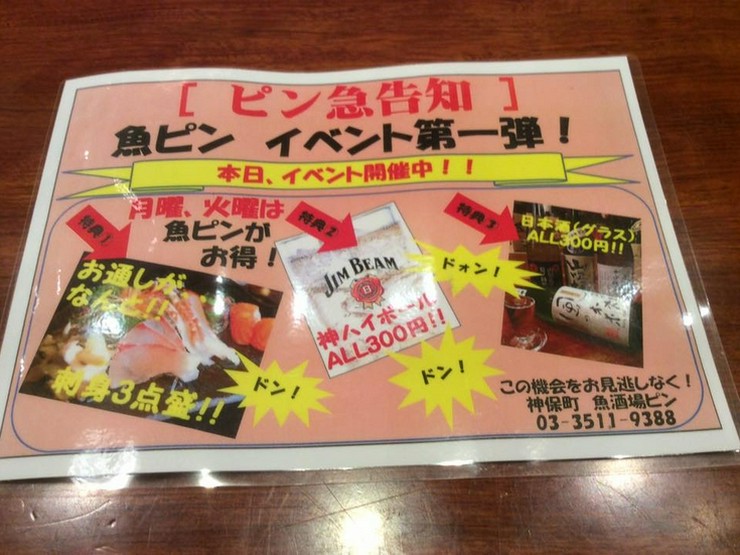 [ ピン急告知 ]
魚ピン イベント第一弾！
本日、イベント開催中！！
特典1
月曜、火曜は
魚ピンが
お得！
お通しが
なんと!!
刺身3点盛!!
ドン！
特典2
JIM BEAM
神ハイボール
ALL300円!!
ドォン！
ドン！
特典3
日本酒(グラス)
ALL300円!!
この機会をお見逃しなく！
神保町 魚酒場ピン
03-3511-9388